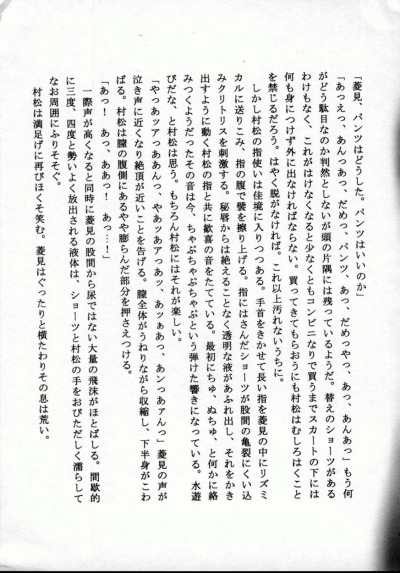 「菱見、パンツはどうした。パンツはいいのか」
「あっえっ、あんっあっ、だめっ、パンツ、あっ、だめっやっ、あっ、あんあっ」もう何
がどう駄目なのか判然としないが頭の片隅には残っているようだ。替えのショーツがある
わけもなく、これがはけなくなると少なくともコンビニなりで買うまでスカートの下には
何も身につけず外に出なければならない。買ってきてもらおうにも村松はむしろはくこと
を禁じるだろう。はやく脱がなければ。これ以上汚れないうちに。
しかし村松の指使いは佳境に入りつつある。手首をきかせて長い指を菱見の中にリズミ
カルに送りこみ、指の腹で襞を擦り上げる。指にはさんだショーツが股間の亀裂にくい込
みクリトリスを刺激する。秘唇からは絶えることなく透明な液があふれ出し、それをかき
出すように動く村松の指と共に歓喜の音をたてている。最初にちゅ、ぬちゅ、と何かに絡
みつくようだったその音は今、ちゃぷちゃぷちゃぷという弾けた響きになっている。水遊
びだな、と村松は思う。もちろん村松にはそれが楽しい。
「やっあッアっああんっ、やあッあアっあッ、あッぁあっ、あンっあアんっ」菱見の声が
泣き声に近くなり絶頂が近いことを告げる。膣全体がうねりながら収縮し、下半身がこわ
ばる。村松は膣の腹側にあるやや膨らんだ部分を押さえつける。
「あっ！　あっ、ああっ！　あっ…！」
一際声が高くなると同時に菱見の股間から尿ではない大量の飛沫がほとばしる。間歇的
に三度、四度と勢いよく放出される液体は、ショーツと村松の手をおびただしく濡らして
なお周囲にふりそそぐ。
村松は満足げに再びほくそ笑む。菱見はぐったりと横たわりその息は荒い。